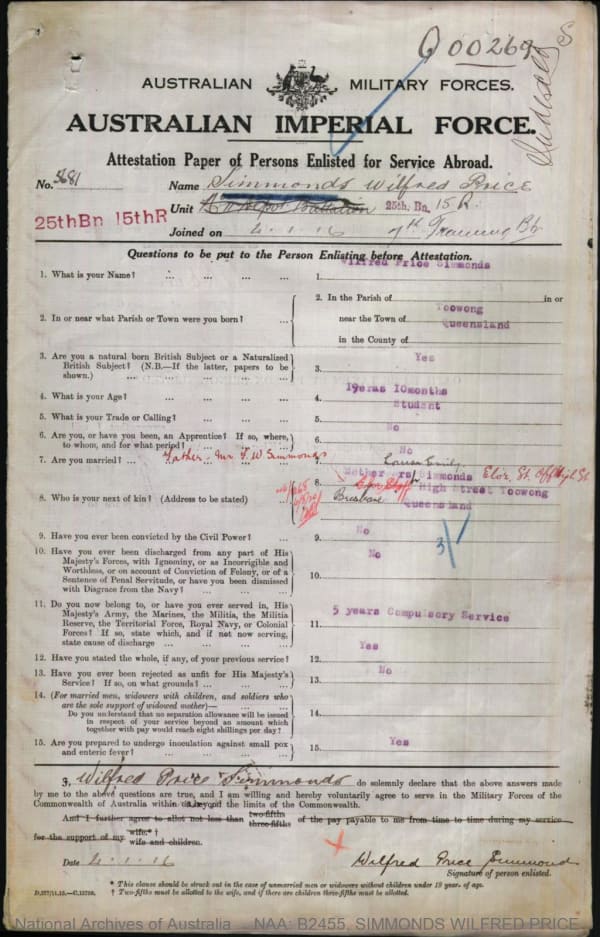 Q 00269
AUSTRALIAN MILITARY FORCES.
AUSTRALIAN IMPERIAL FORCE.
Attestation Paper of Persons Enlisted for Service Abroad.
No. 5681 Name Simmonds Wilfred Price
Unit Battalion 25th. Bn. 15 R.
25thBn 15thR
Joined on 4.1.16 7th Training Bn
Questions to be put to the Person Enlisting before Attestation.
1. What is your Name? ... ... ... ... 1. Wilfred Price Simmonds
2. In or near what Parish or Town were you born? ... 2. In the Parish of in or
near the Town of Toowong
in the County of Queensland
3. Are you a natural born British Subject or a Naturalized British Subject? (N.B.—If the latter, papers to be shown.) ... ... ... ... 3. Yes
4. What is your Age? ... ... ... ... 4. 19yeras 10months
5. What is your Trade or Calling? ... ... ... 5. Student
6. Are you, or have you been, an Apprentice? If so, where, to whom, and for what period? ... ... 6. No
7. Are you married? ... ... ... ... 7. No
Father. Mr. F. W Simmonds
Louisa Emily
8. Who is your next of kin? (Address to be stated) ... 8. Mother Mrs Simmonds Eliz. St. Off High St
High Street Toowong
Brisbane Queensland
9. Have you ever been convicted by the Civil Power? ... 9. No
10. Have you ever been discharged from any part of His Majesty's Forces, with Ignominy, or as Incorrigible and Worthless, or on account of Conviction of Felony, or of a Sentence of Penal Servitude, or have you been dismissed with Disgrace from the Navy? ... ... ... 10. No
11. Do you now belong to, or have you ever served in, His Majesty's Army, the Marines, the Militia, the Militia Reserve, the Territorial Force, Royal Navy, or Colonial Forces? If so, state which, and if not now serving, state cause of discharge ... ... ... 11. 5 years Compulsory Service
12. Have you stated the whole, if any, of your previous service? 12. Yes
13. Have you ever been rejected as unfit for His Majesty's Service? If so, on what grounds? ... ... 13. No
14. (For married men, widowers with children, and soldiers who are the sole support of widowed mother)—
Do you understand that no separation allowance will be issued in respect of your service beyond an amount which together with pay would reach eight shillings per day? ... 14.
15. Are you prepared to undergo inoculation against small pox and enteric fever? ... ... ... 15. Yes
I, Wilfred Price Simmonds do solemnly declare that the above answers made
by me to the above questions are true, and I am willing and hereby voluntarily agree to serve in the Military Forces of the
Commonwealth of Australia within or beyond the limits of the Commonwealth.
And I further agree to allot not less than two-fifths three-fifths of the pay payable to me from time to time during my service
for the support of my wife.* † wife and children.
Date 4.1.16 Wilfred Price Simmonds
Signature of person enlisted.
* This clause should be struck out in the case of unmarried men or widowers without children under 18 year. of age.
† Two-fifths must be allotted to the wife, and if there are children three-fifths must be allotted.
D.277/11.15.—C.13798.
National Archives of Australia NAA: B2455, SIMMONDS WILFRED PRICE